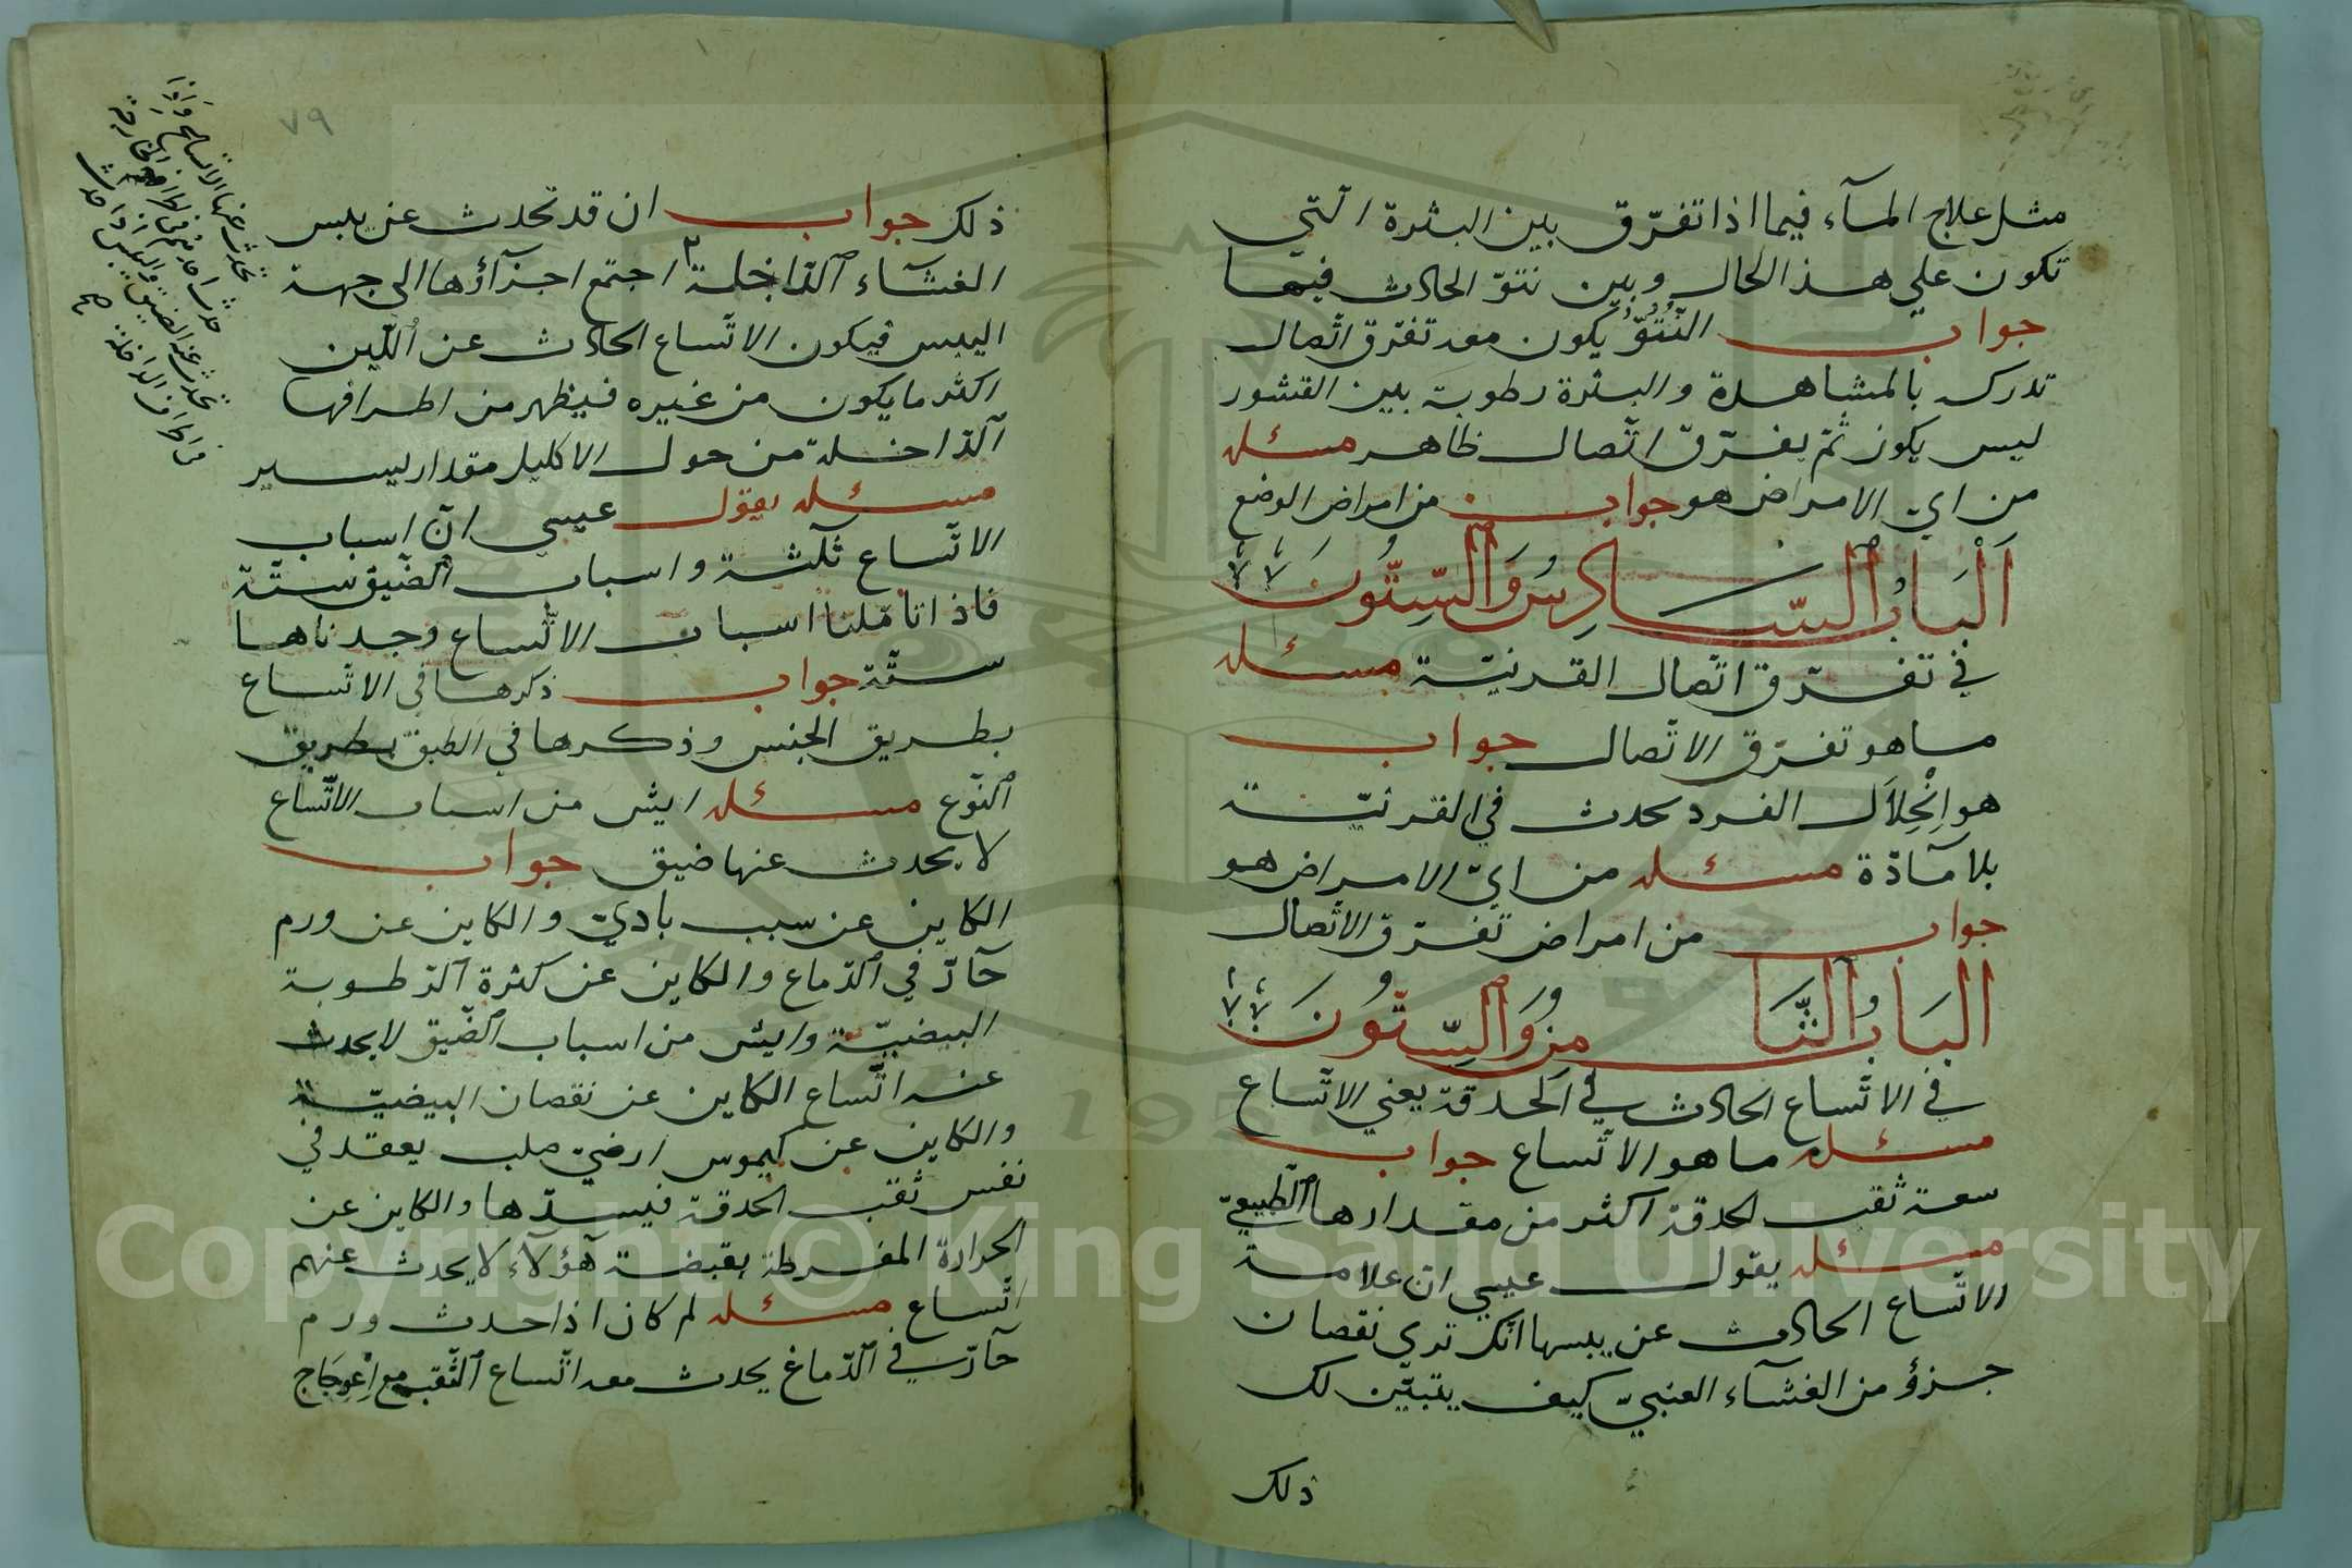 مثل علاج المآء فيما اذا تفرّق بين البثرة الّتي
تكون علي هذ الحال وبين نتوّ الحادث فيها
جواب النّتُوّ يكون معه تفرّق اتّصال
تدركه بالمشاهدة والبثرة رطوبة بين القشور
ليس يكون ثمّ يفرّق اتّصال ظاهر مسئله
من ايّ الامراض هو جواب من امراض الوضع
اَلْبَابُ السَّادِسُ وَالسِّتُّونَ
في تفرّق اتّصال القرنيّة مسئله
ما هو تفرّق الاتّصال جواب
هو اِنْحِلاَل الفرد يحدث في القرنيّة
بلا مآدّة مسئله من ايّ الامراض هو
جواب من امراض تفرّق الاتّصال
البَابُ الثَّامِنُ وَالسِّتُّونَ
في الاتّساع الحادث في الحدقة يعني الاتّساع
مسئله ما هو الاتّساع جواب
سعة ثقب الحدقة اكثر من مقدارها الطّبيعيّ
مسئله يقول عيسي انّ علامة
الاتّساع الحادث عن يبسها انّك تري نقصان
جزؤ من الغشآء العنبيّ كيف يتبيّن لك
ذلك
٧٩
ذلك جواب ان قد تحدث عن يبس
الغشآء الدّاخلة ٢ اجتمع اجزآؤها الي جهة
اليبس فيكون الاتّساع الحادث عن اللّين
اكثر ما يكون من غيره فيظهر من اطرافها
الدّاخلة من حول الاكليل مقدار يسير
مسئله يقول عيسي انّ اسباب
الاتّساع ثلثة واسباب الضّيق ستّة
فاذا تامّلنا اسباب الاتّساع وجدناها
ستّة جواب ذكرها في الاتّساع
بطريق الجنس وذكرها في الطبق بطريق
النّوع مسئله ايش من اسباب الاتّساع
لا يحدث عنها ضيق جواب
الكاين عن سبب باديّ والكاين عن ورم
حآدّ في الدّماع والكاين عن كثرة الرّطوبة
البيضيّة وايش من اسباب الضّيق لا يحدث
عنه اتّساع الكاين عن نقصان البيضيّة
والكاين عن كيموس ارضيّ صلب يعقد في
نفس ثقب الحدقة فيسدّها والكاين عن
الحرارة المفرطة بقبضة هؤلآء لا يحدث عنهم
اتّساع مسئله لم كان اذا حدث ورم
حآدّ في الدّماغ يحدث معه اتّساع الثّقب مع اِعْوِجَاج
تحدث عنها الاتساع واذا
تحدث عنه الضيق واليبس اذا حدث
من اطراف الداخلة صح